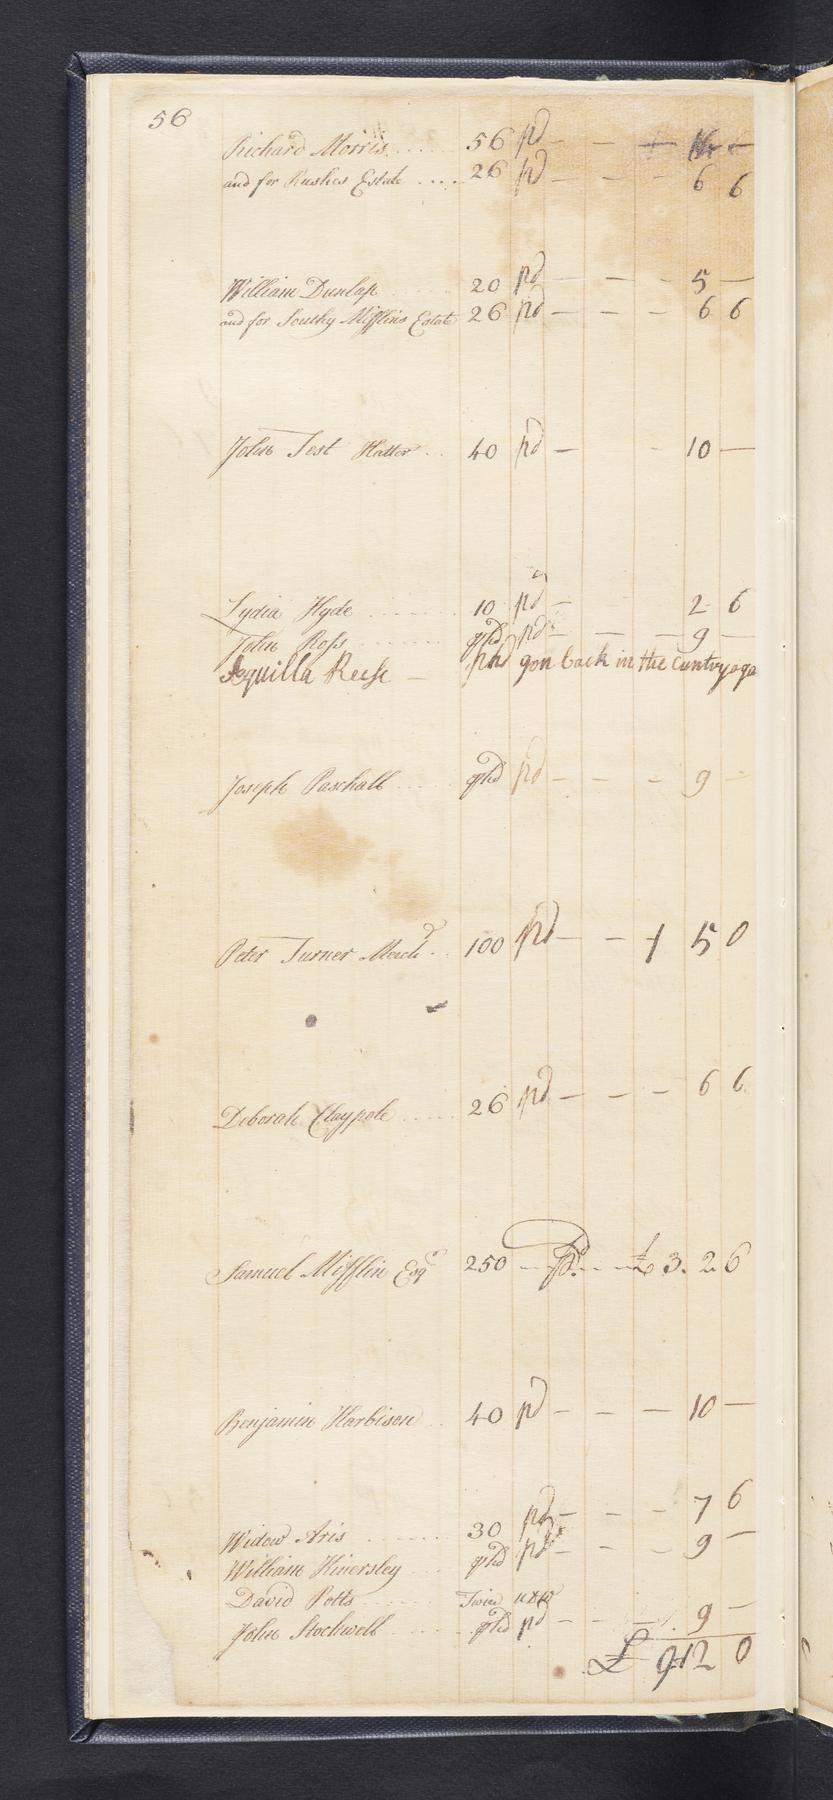 56
Richard Morris 56 pd — — — 14 —
and for Rushes Estate 26 pd — — — 6 6
William Dunlap 20 pd — — — 5 —
and for Southy Mifflins Estate 26 pd — — — 6 6
John Test Hatter 40 pd — — 10 —
Lydia Hyde 10 pd — 2 6
John Ross phd pd — — — 9 —
Aquilla Reese — phd gon back in the Cuntry ago
Joseph Paschall phd pd — — — 9 —
Peter Turner Merch.t 100 pd — — 1 5 0
Deborah Claypole 26 pd — — — 6 6
Samuel Mifflin Esq.r 250 — pd. — £ 3. 2. 6
Benjamin Harbison 40 pd — — — 10 —
Widow Aris 30 pd — — — 7 6
William Kinersley phd pd — — — 9 —
David Potts Twice
John Stockwell phd pd — — — 9 —
£ 9 12 0